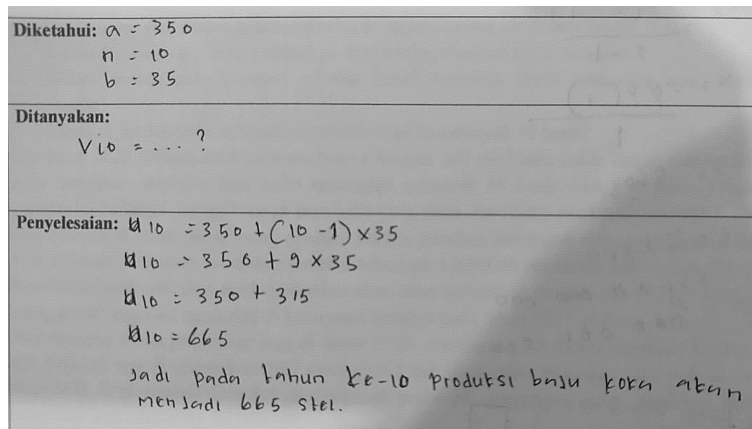 Diketahui: a = 350
n = 10
b = 35
Ditanyakan:
V10 = ... ?
Penyelesaian: U10 = 350 + (10 - 1) x 35
U10 = 350 + 9 x 35
U10 = 350 + 315
U10 = 665
Jadi pada tahun ke-10 produksi baju koko akan
menjadi 665 stel.